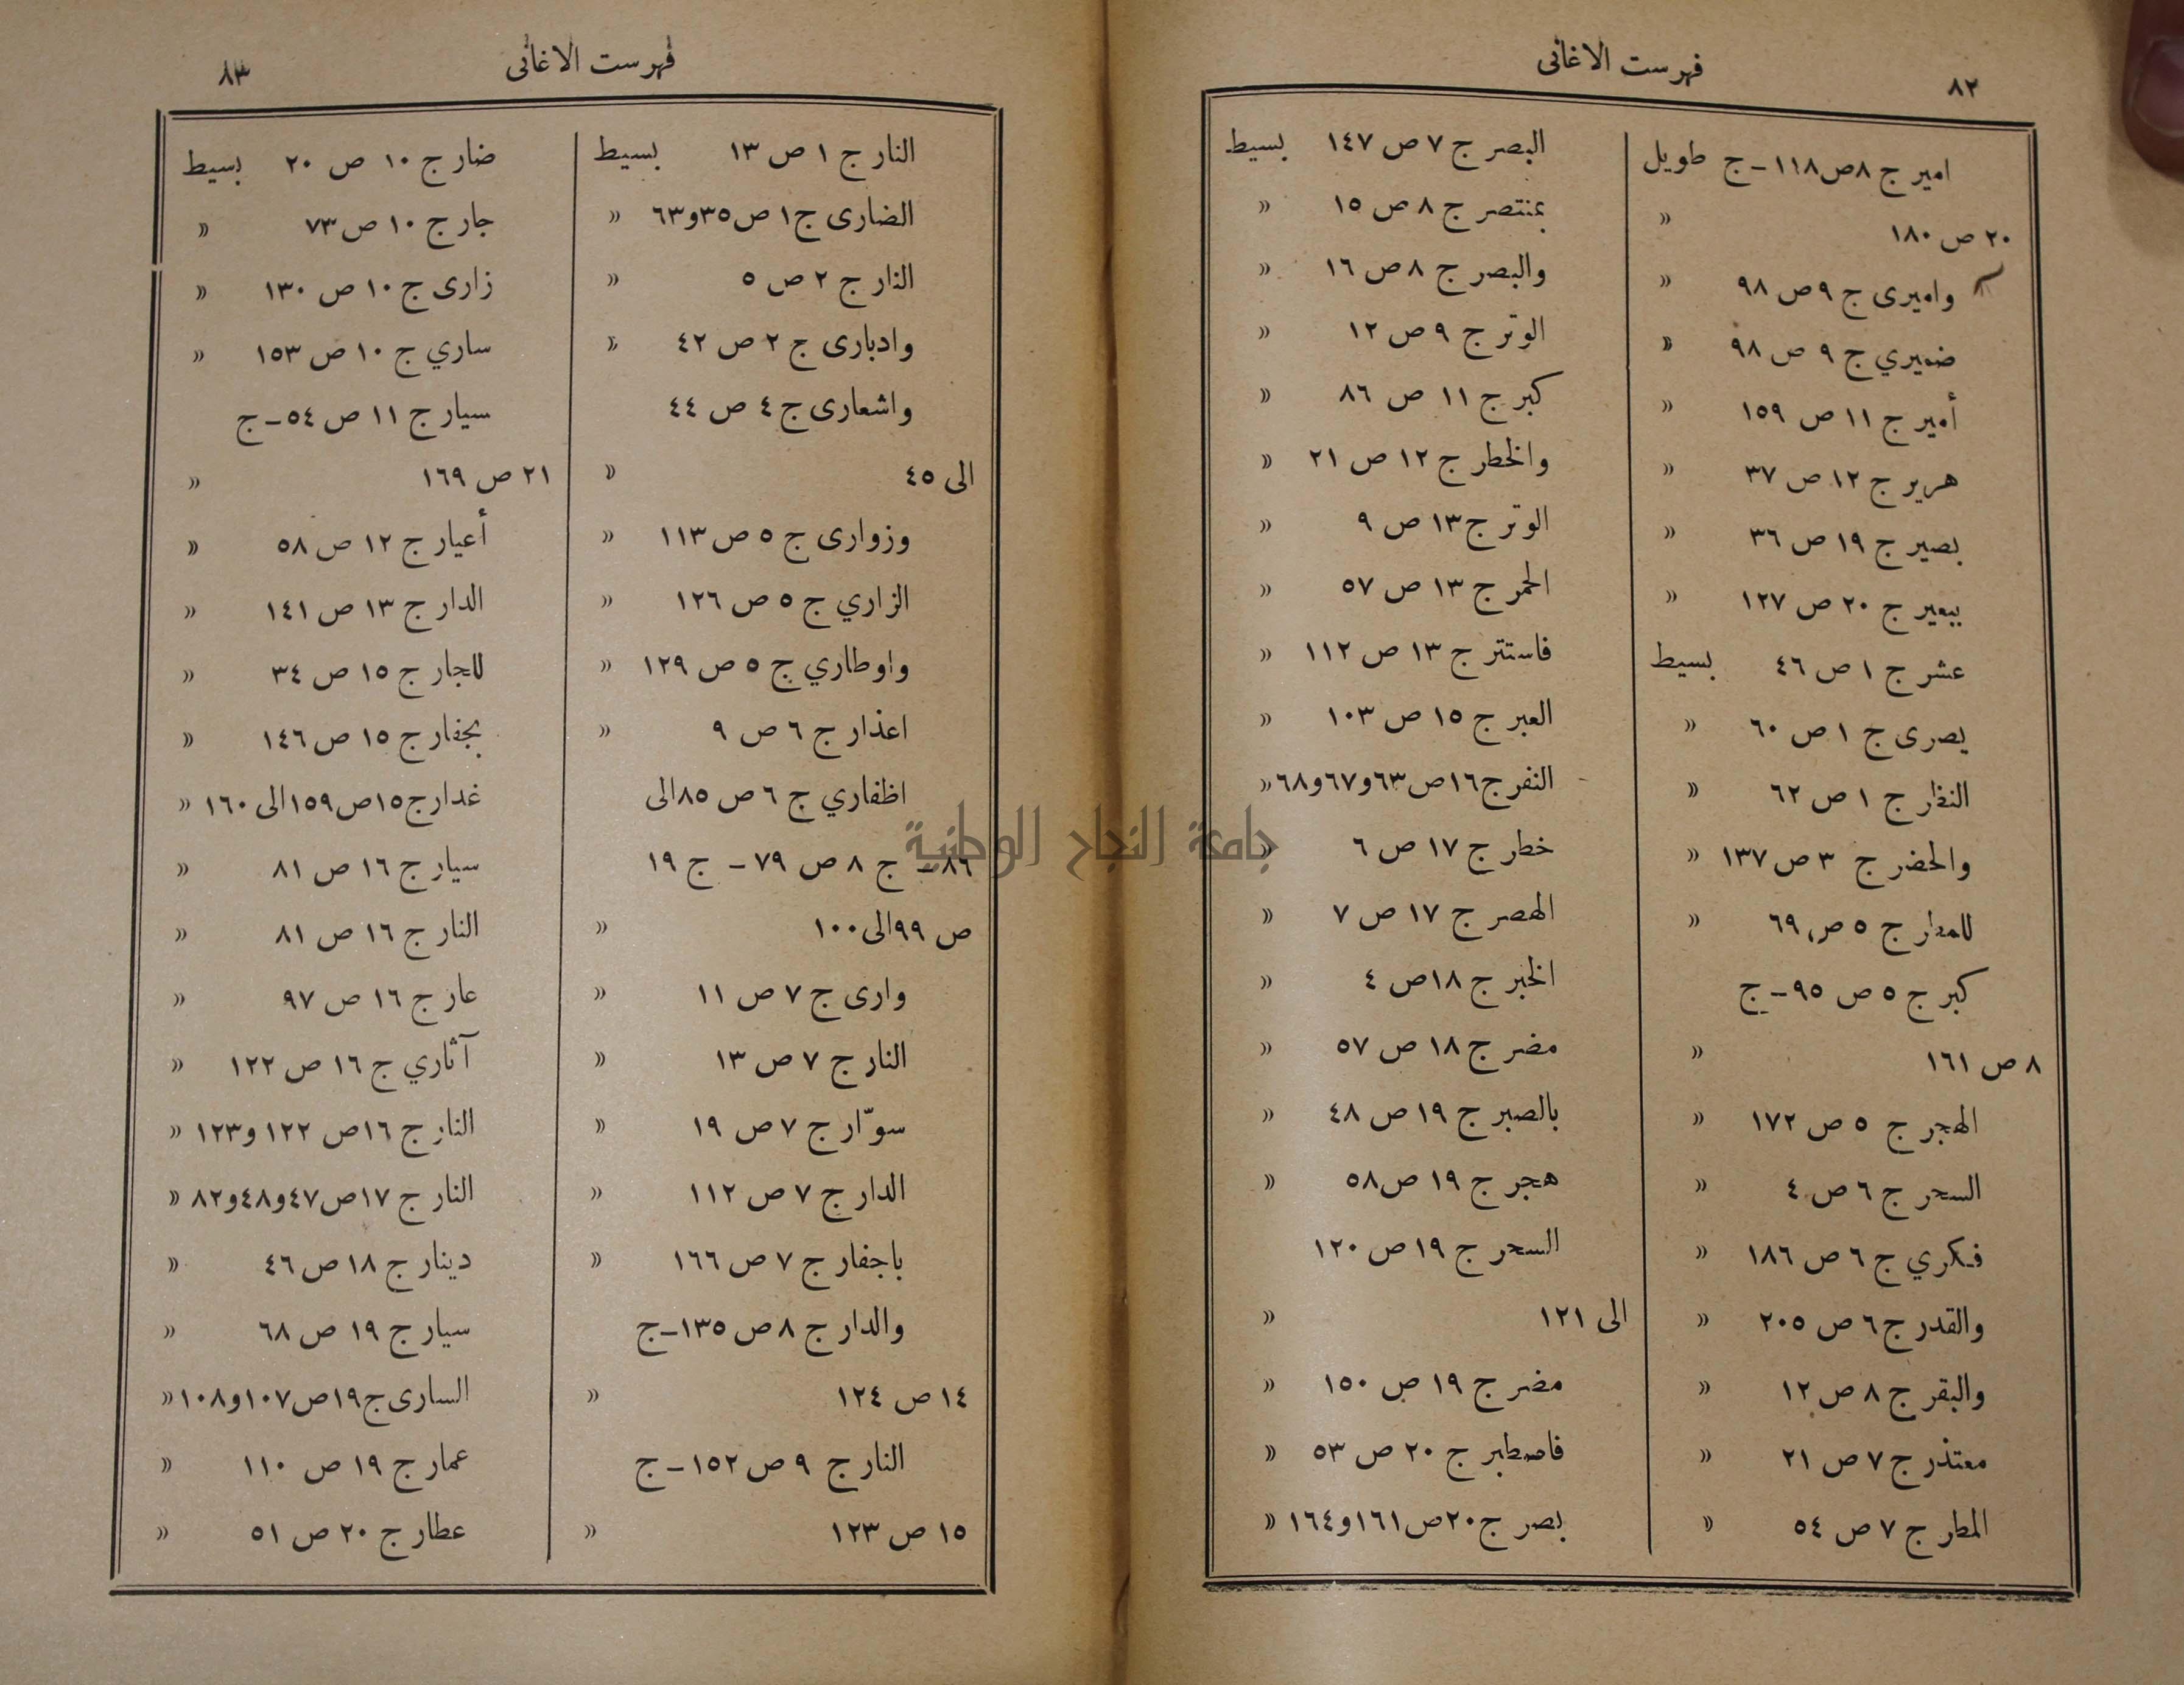 ٨٢
فهرست الاغانى
امير ج ٨ص١١٨-ج طويل
٢٠ ص ١٨٠ «
واميرى ج ٩ص ٩٨ «
ضميري ج ٩ ص ٩٨ «
أمير ج ١١ ص ١٥٩ «
هرير ج ١٢ ص ٣٧ «
بصير ج ١٩ ص ٣٦ «
ببعير ج ٢٠ ص ١٢٧ «
عشر ج ١ ص ٤٦ بسيط
يصرى ج ١ ص ٦٠ «
النظر ج ١ ص ٦٢ «
والحضر ج ٣ ص ١٣٧ «
للمطر ج ٥ ص ٦٩ «
كبر ج ٥ ص ٩٥-ج
٨ ص ١٦١ «
الهجر ج ٥ ص ١٧٢ «
السحر ج ٦ ص ٤ «
فكري ج ٦ ص ١٨٦ «
والقدر ج٦ ص ٢٠٥ «
والبقر ج ٨ ص ١٢ «
معتذر ج ٧ ص ٢١ «
المطر ج ٧ ص ٥٤ «
البصر ج ٧ ص ١٤٧ بسيط
بمنتصر ج ٨ ص ١٥ «
والبصر ج ٨ ص ١٦ «
الوتر ج ٩ ص ١٢ «
كبر ج ١١ ص ٨٦ «
والخطر ج ١٢ ص ٢١ «
الوتر ج١٣ ص ٩ «
الحمر ج ١٣ ص ٥٧ «
فاستتر ج ١٣ ص ١١٢ «
العبر ج ١٥ ص ١٠٣ «
النفر ج١٦ص٦٣و٦٧و٦٨ «
خطر ج ١٧ ص ٦ «
الهصر ج ١٧ ص ٧ «
الخبر ج ١٨ص ٤ «
مضر ج ١٨ ص ٥٧ «
بالصبر ج ١٩ ص ٤٨ «
هجر ج ١٩ ص٥٨ «
السحر ج ١٩ ص ١٢٠
الى ١٢١ «
مضر ج ١٩ ص ١٥٠ «
فاصطبر ج ٢٠ ص ٥٣ «
بصر ج٢٠ص١٦١و١٦٤ «
جامعة النجاح الوطنية
فهرست الاغانى
٨٣
النار ج ١ ص ١٣ بسيط
الضارى ج١ ص٣٥و٦٣ «
النار ج ٢ ص ٥ «
وادبارى ج ٢ ص ٤٢ «
واشعارى ج ٤ ص ٤٤
الى ٤٥ «
وزوارى ج ٥ ص ١١٣ «
الزاري ج ٥ ص ١٢٦ «
واوطاري ج ٥ ص ١٢٩ «
اعذار ج ٦ ص ٩ «
اظفاري ج ٦ ص ٨٥الى
٨٦- ج ٨ ص ٧٩ - ج ١٩
ص ٩٩الى١٠٠ «
وارى ج ٧ ص ١١ «
النار ج ٧ ص ١٣ «
سوّار ج ٧ ص ١٩ «
الدار ج ٧ ص ١١٢ «
باجفار ج ٧ ص ١٦٦ «
والدار ج ٨ ص ١٣٥-ج
١٤ ص ١٢٤ «
النار ج ٩ ص ١٥٢-ج
١٥ ص ١٢٣ «
ضار ج ١٠ ص ٢٠ بسيط
جار ج ١٠ ص ٧٣ «
زارى ج ١٠ ص ١٣٠ «
ساري ج ١٠ ص ١٥٣ «
سيار ج ١١ ص ٥٤-ج
٢١ ص ١٦٩ «
أعيار ج ١٢ ص ٥٨ «
الدار ج ١٣ ص ١٤١ «
للجار ج ١٥ ص ٣٤ «
بجفار ج ١٥ ص ١٤٦ «
غدار ج١٥ص١٥٩الى ١٦٠ «
سيار ج ١٦ ص ٨١ «
النار ج ١٦ ص ٨١ «
عار ج ١٦ ص ٩٧ «
آثاري ج ١٦ ص ١٢٢ «
النار ج ١٦ص ١٢٢ و١٢٣ «
النار ج ١٧ص٤٧و٤٨و٨٢ «
دينار ج ١٨ ص ٤٦ «
سيار ج ١٩ ص ٦٨ «
السارى ج١٩ص١٠٧و١٠٨ «
عمار ج ١٩ ص ١١٠ «
عطار ج ٢٠ ص ٥١ «